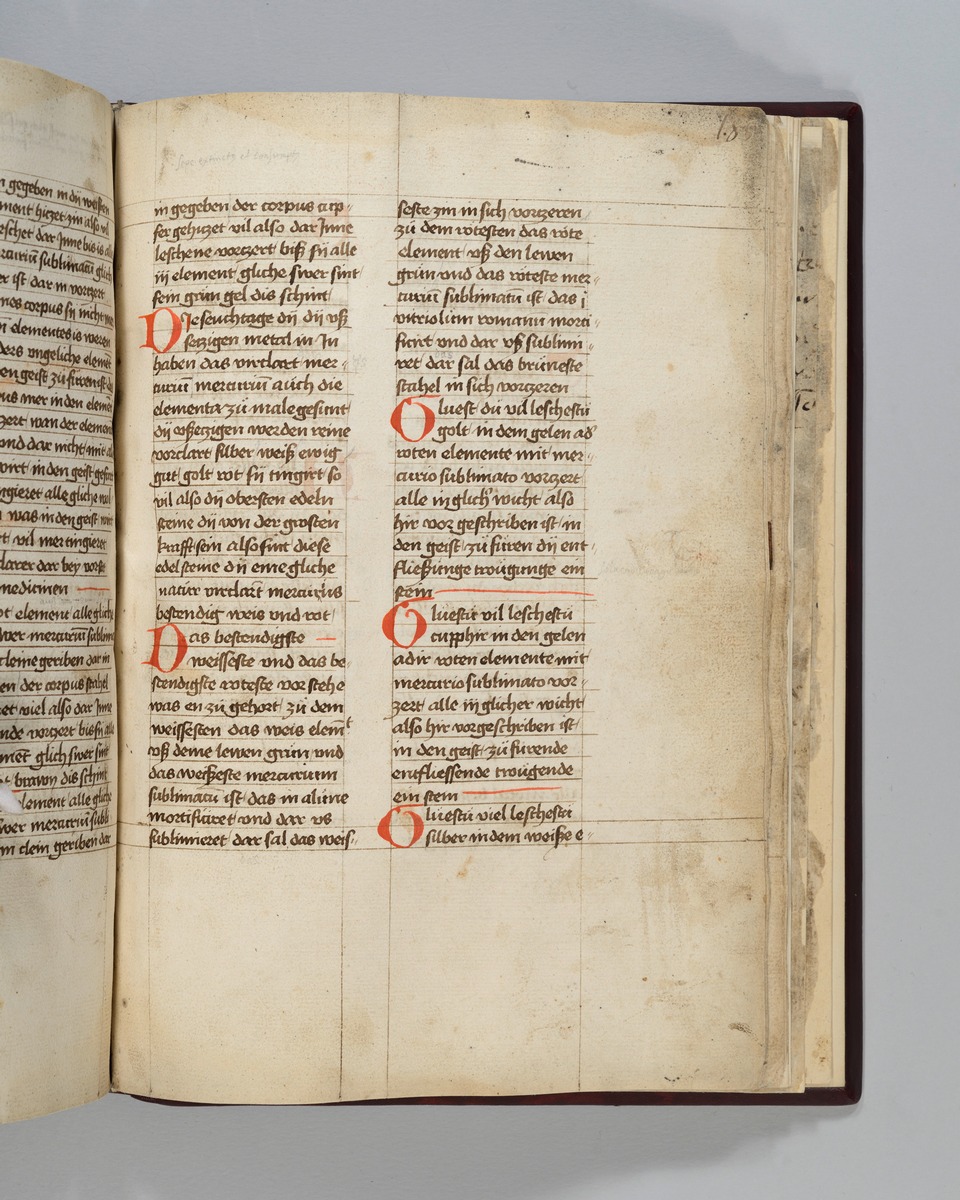 n gegeben in dü weissen
ment hiczet im also vil
eschet dar Jnne bis is all
er ist dar in vorczert
nes corpus sü nicht
n elementes is weren
ders vngeliche element
en geist zü füren ist
us mer in den element
zert wan der element
vnd dar nicht mit al
wirt in den geist
ngieret alle gliche
was in den geist wirt
t vil mer tingieret
larer dar bey vorste
medicinen
ot element alle glich
wer mercuriü sublim
cleine geriben dar in
en der corpus stahel
et viel also dar Jnne
nde vorczert bis sü alle
ment glich swer sint
brawn dis schint
element alle gliche
wer mercuriü subli
m clein geriben dar
in gegeben der corpus cup-
fer gehiczet vil also dar Jnne
leschene vorczert biß sü alle
iij element gliche swer sint
sem grün gel dis schint
Die seuchtage dü dü vß
seczigen metal in In
haben das vorclart mer-
curiü mercuriü auch die
elementa zü male gesunt
dü vßseczigen werden reine
vorclart silber weiß ewig
gut golt rot sü tingirt so
vil also dü obersten edeln
steine dü von der grosten
krafft sein also sint diese
edel steine dü eine gliche
natür vorclart mercurius
bestendig weis vnd rot
Das bestendigste
weisseste vnd das be-
stendigste roteste vorstehe
was en zü gehort zü dem
weissesten das weis elemt
vß deme lewen grün vnd
das weißeste mercurium
sublimatü ist das in alüne
mortificiret vnd dar vs
sublimieret dar sal das weis-
seste zin in sich vorczeren
zü dem rotesten das rote
element vß den lewen
grün vnd das roteste mer-
curiü sublimatü ist das j
vitriolum romanü morti-
ficirt vnd dar vß sublimi-
ret dar sal das brüneste
stahel in sich vorczeren
Oluest dü vil leschestü
golt in dem gelen ad
roten elemente mit mer-
curio sublimato vorczert
alle in glich wicht also
hir vor geschriben ist in
den geist zü füren dü ent-
fließünge troügunge ein
stein
Oluestü vil leschestü
cupphir in den gelen
adir roten elemente mit
mercurio sublimato vor-
zert alle in glicher wicht
also hir vorgeschriben ist
in den geist zü furende
entfliessende troügende
ein stein
Oluestü viel leschestü
silber in dem weiße e-